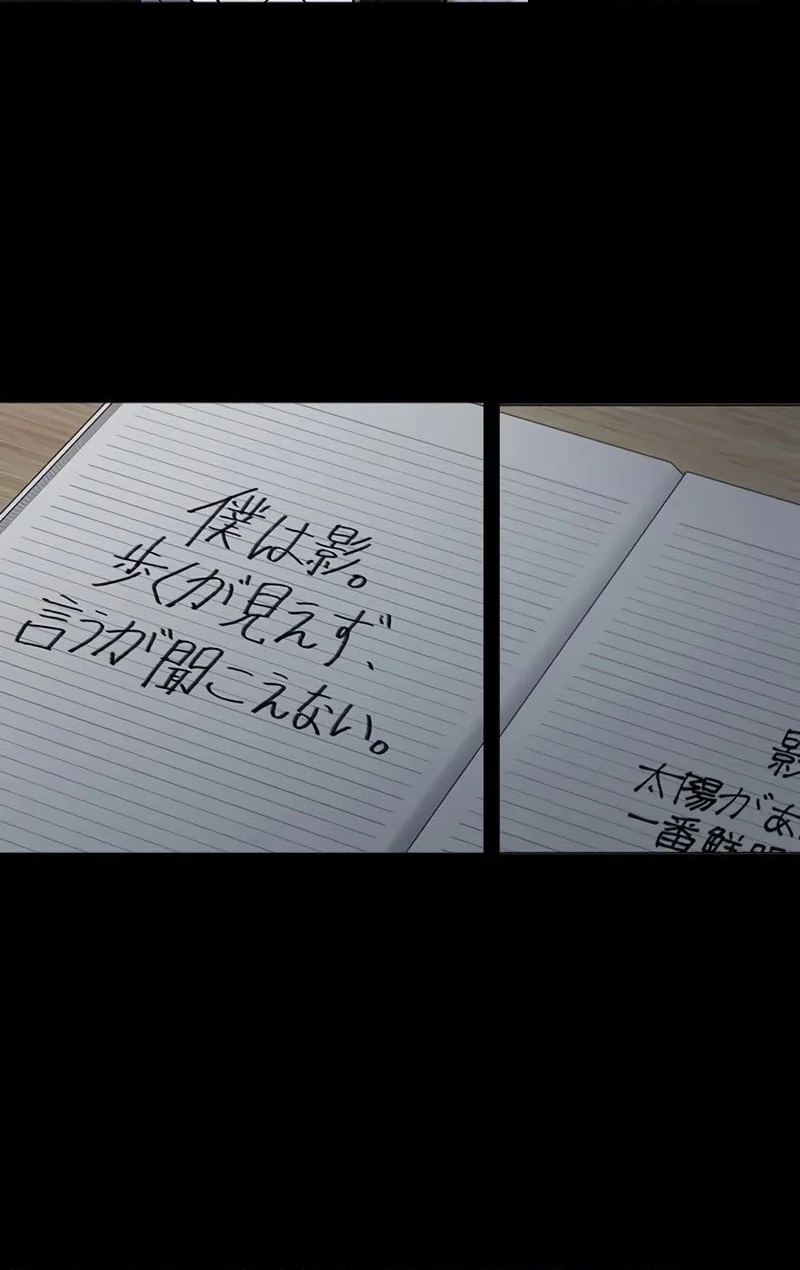 僕は影。
歩くが見えず、
言うが聞こえない。
影
太陽があ
一番鮮明